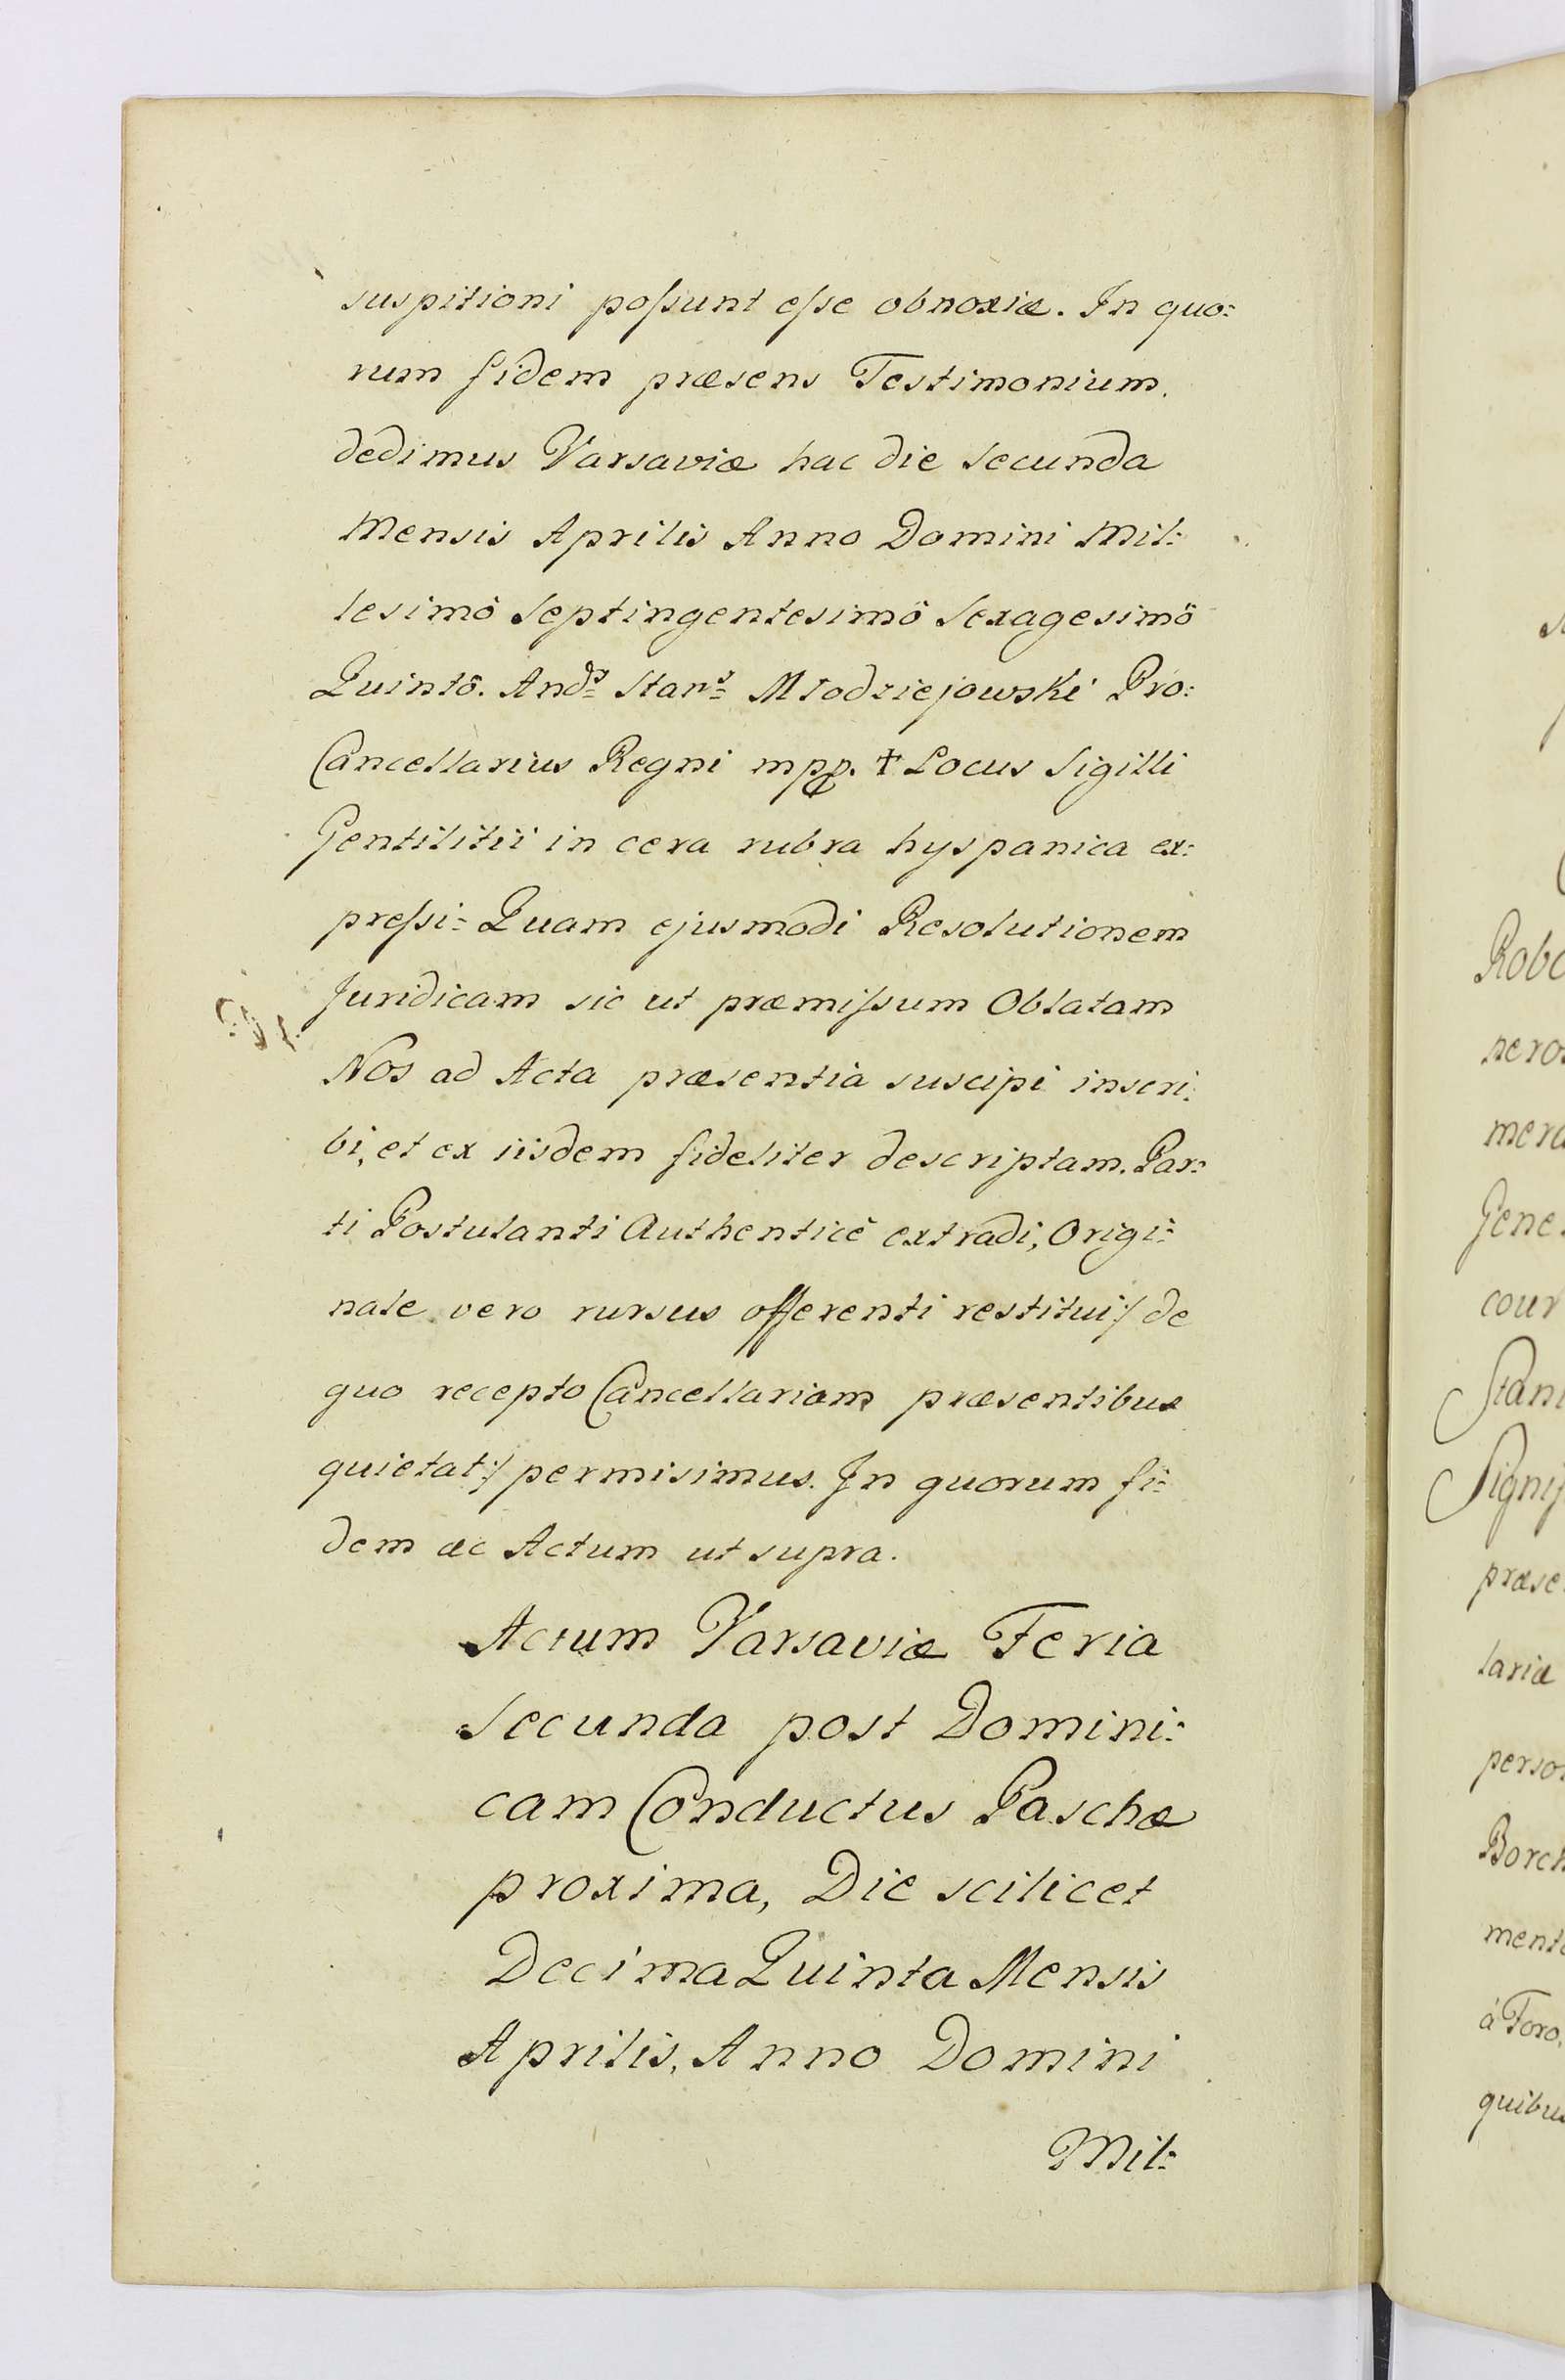 suspitioni poſsunt eſse obnoxiæ. In quo:
rum fidem præsens Testimonium.
dedimus Varsaviæ hac die secunda
Mensis Aprilis Anno Domini Mil:
lesimô Septingentesimô Sexagesimô
Quintô. Andˢ Stanˢ Młodziejowski Pro:
Cancellarius Regni mpp. † Locus Sigilli
Gentilitii in cera rubra hyspanica ex:
preſsi = Quam ejusmodi Resolutionem
Juridicam sic ut præmiſsum Oblatam
Nos ad Acta præsentia suscipi inscri:
bi, et ex iisdem fideliter descriptam. Par:
ti Postulanti Authenticè extradi, Origi:
nale vero rursus offerenti restitui :/ de
quo recepto Cancellariam præsentibus
quietat :/ permisimus. In quorum fi:
dem ac Actum ut supra.
Actum Varsaviæ Feria
secunda post Domini:
cam Conductus Paschæ
proxima, Die scilicet
Decima Quinta Mensis
Aprilis, Anno Domini
Mil:
Robo
nero
mera
Gene
cour
Stani
Signi
præse
lariæ
perso
Borch
mente
à Foro
quibu